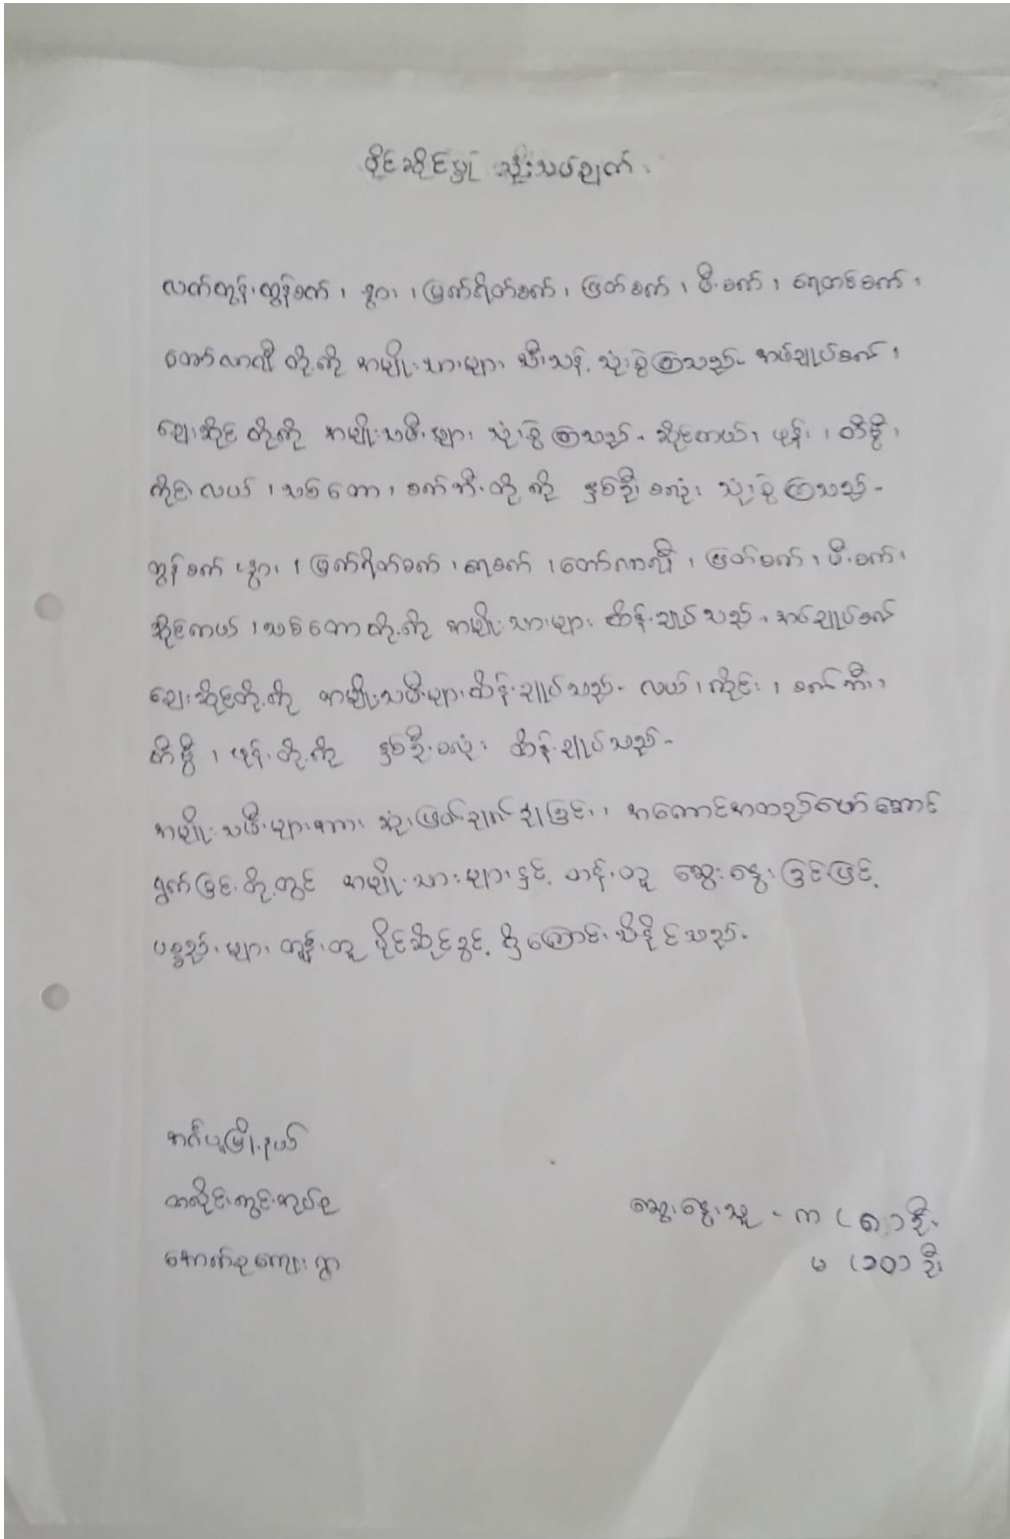 ပိုင်ဆိုင်မှု သုံးသပ်ချက်
လက်တွန်းထွန်စက်၊ နွား၊ မြက်ရိတ်စက်၊ ဖြတ်စက်၊ မီးစက်၊ ရေတင်စက်၊
ထော်လာဂျီ တို့ကို အမျိုးသားများ သီးသန့် သုံးစွဲကြသည်။ အပ်ချုပ်စက်၊
ဈေးဆိုင် တို့ကို အမျိုးသမီးများ သုံးစွဲကြသည်။ ဆိုင်ကယ်၊ ဖုန်း၊ တီဗွီ၊
ကိုင်းလယ်၊ သစ်တော၊ စက်ဘီးတို့ကို နှစ်ဦးစလုံး သုံးစွဲကြသည်။
ထွန်စက် နွား၊ မြက်ရိတ်စက်၊ ရေစက်၊ ထော်လာဂျီ၊ ဖြတ်စက်၊ မီးစက်၊
ဆိုင်ကယ်၊ သစ်တောတို့ကို အမျိုးသားများ ထိန်းချုပ်သည်။ အပ်ချုပ်စက်
ဈေးဆိုင်တို့ကို အမျိုးသမီးများထိန်းချုပ်သည်။ လယ်၊ ကိုင်း၊ စက်ဘီး၊
တီဗွီ၊ ဖုန်းတို့ကို နှစ်ဦးစလုံး ထိန်းချုပ်သည်။
အမျိုးသမီးများအား ဆုံးဖြတ်ချက်ချခြင်း၊ အကောင်အထည်ဖော်ဆောင်
ရွက်ခြင်းတို့တွင် အမျိုးသားများနှင့် တန်းတူ ဆွေးနွေးခြင်းဖြင့်
ပစ္စည်းများ တန်းတူ ပိုင်ဆိုင်ခွင့် ရှိကြောင်း သိနိုင်သည်။
အင်္ဂပူမြို့နယ်
ထလိုင်းကွင်းအုပ်စု
အောက်စုကျေးရွာ
ဆွေးနွေးသူ - က (၈) ဦး
မ (၁၀) ဦး